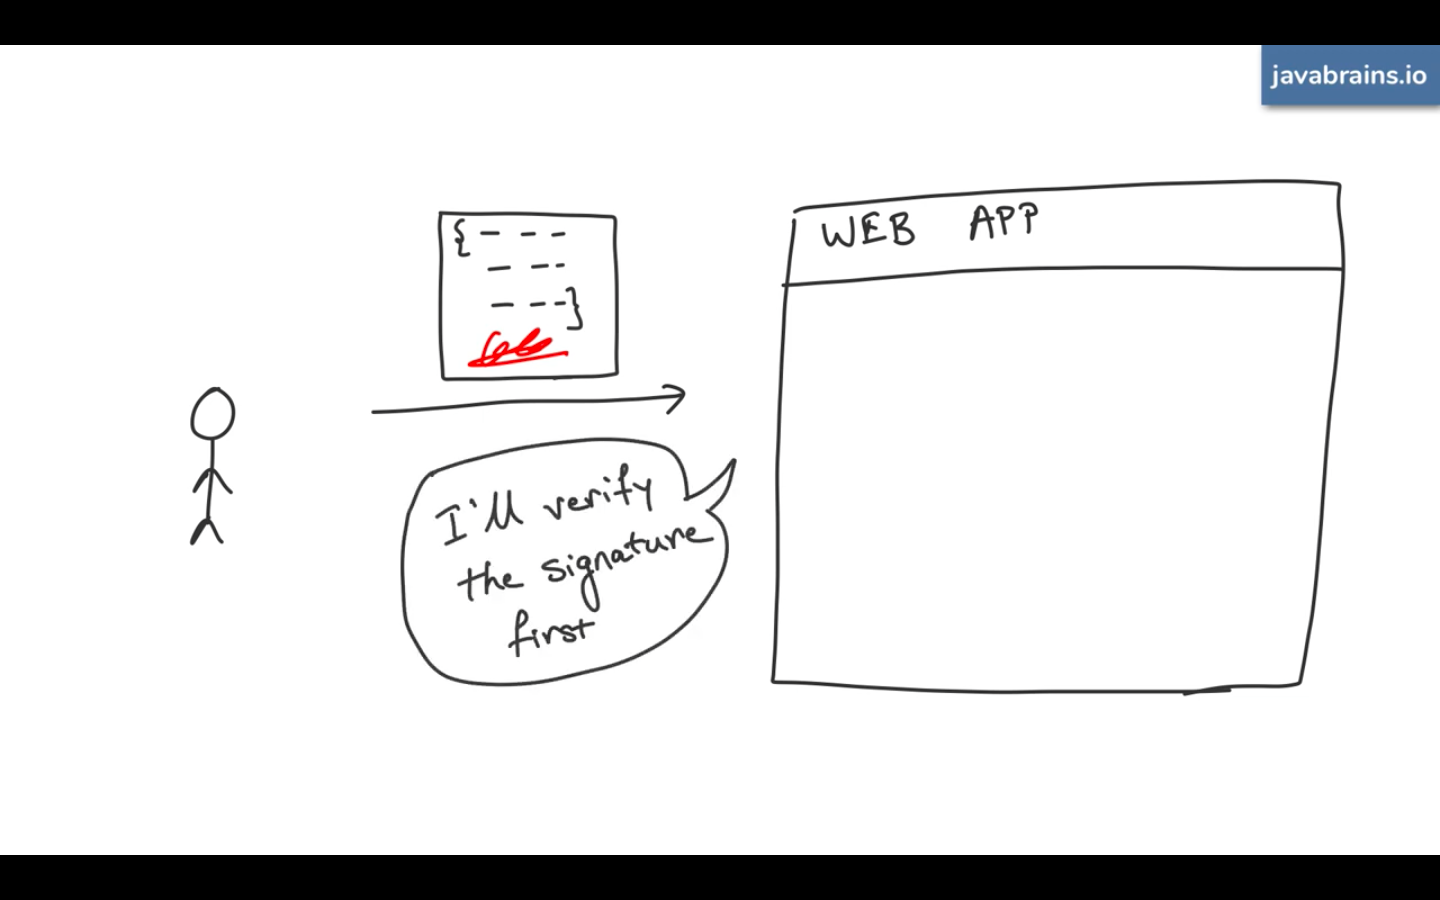 javabrains.io
WEB APP
{ - - -
- - -
- - - }
I'll verify
the signature
first